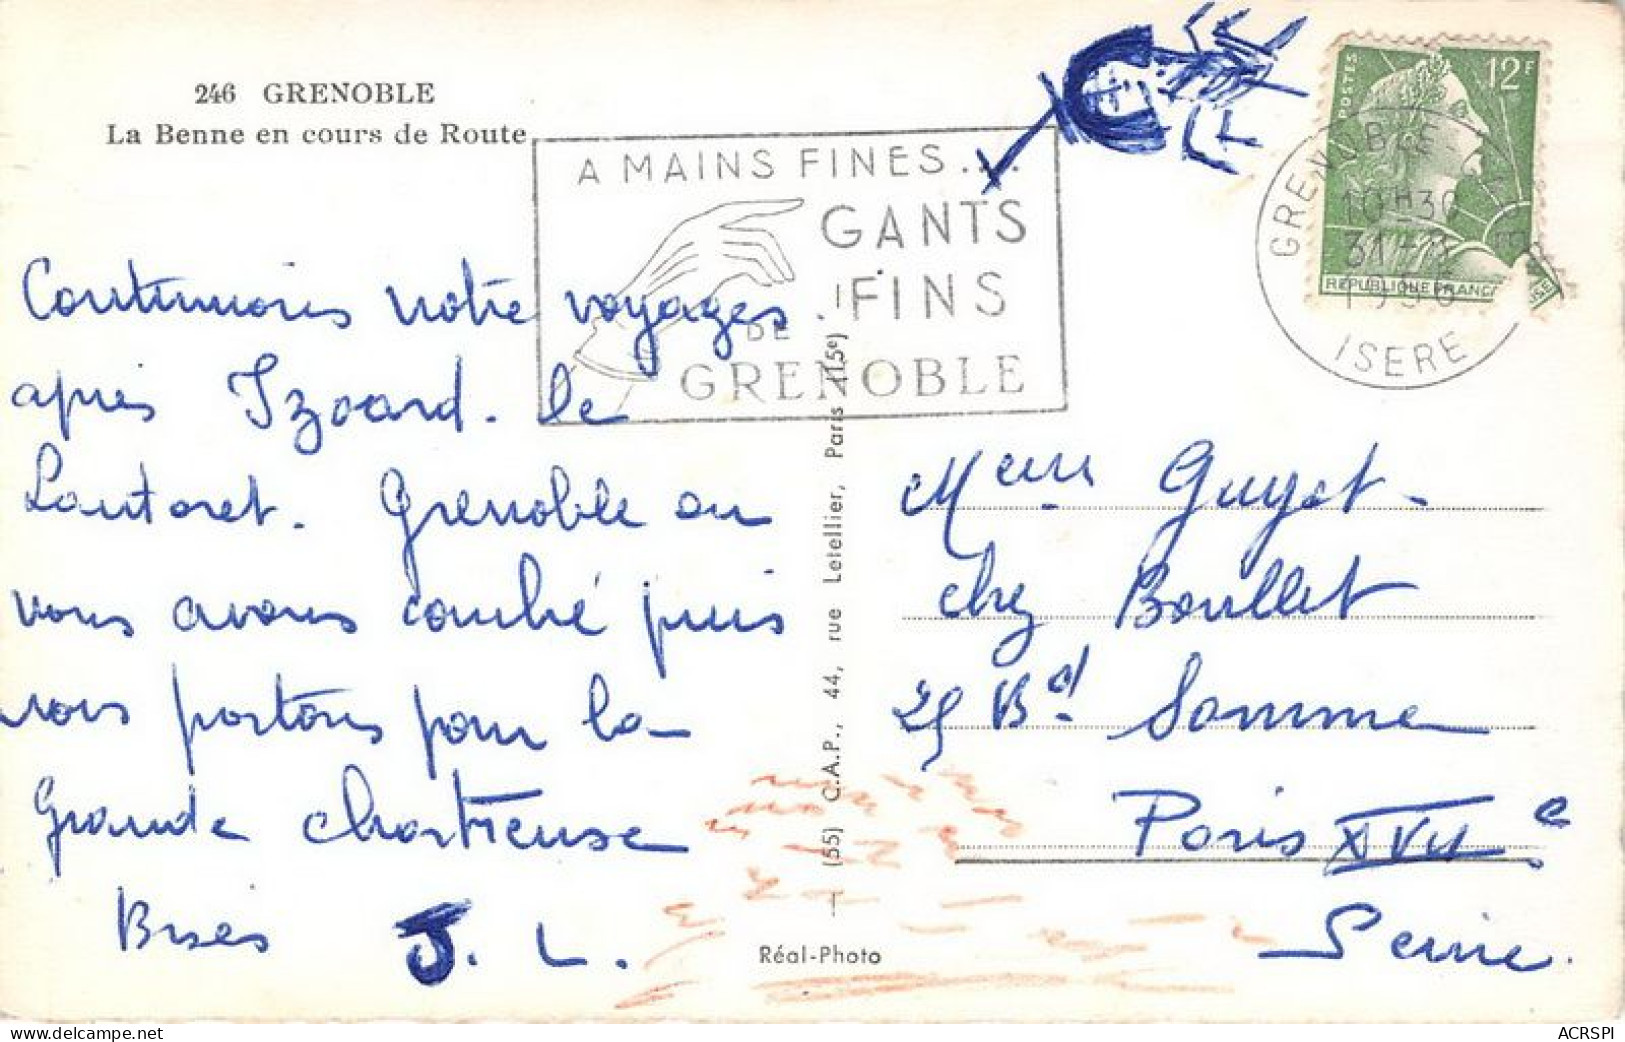 246 GRENOBLE
La Benne en cours de Route
A MAINS FINES...
GANTS
FINS
DE
GRENOBLE
POSTES
12F
REPUBLIQUE FRANÇAISE
GRENOBLE
10H30
31
ISERE
Continuons notre voyages.
après Izoard. le
Lautaret. Grenoble ou
nous avons couché puis
nous partons pour la
Grande Chartreuse
Bises J. L.
(55) C.A.P., 44, rue Letellier, Paris (15e)
Réal-Photo
Guyot
chez Boullet
25 Bd Somme
Paris XVIIe
Seine.
ACRSPI